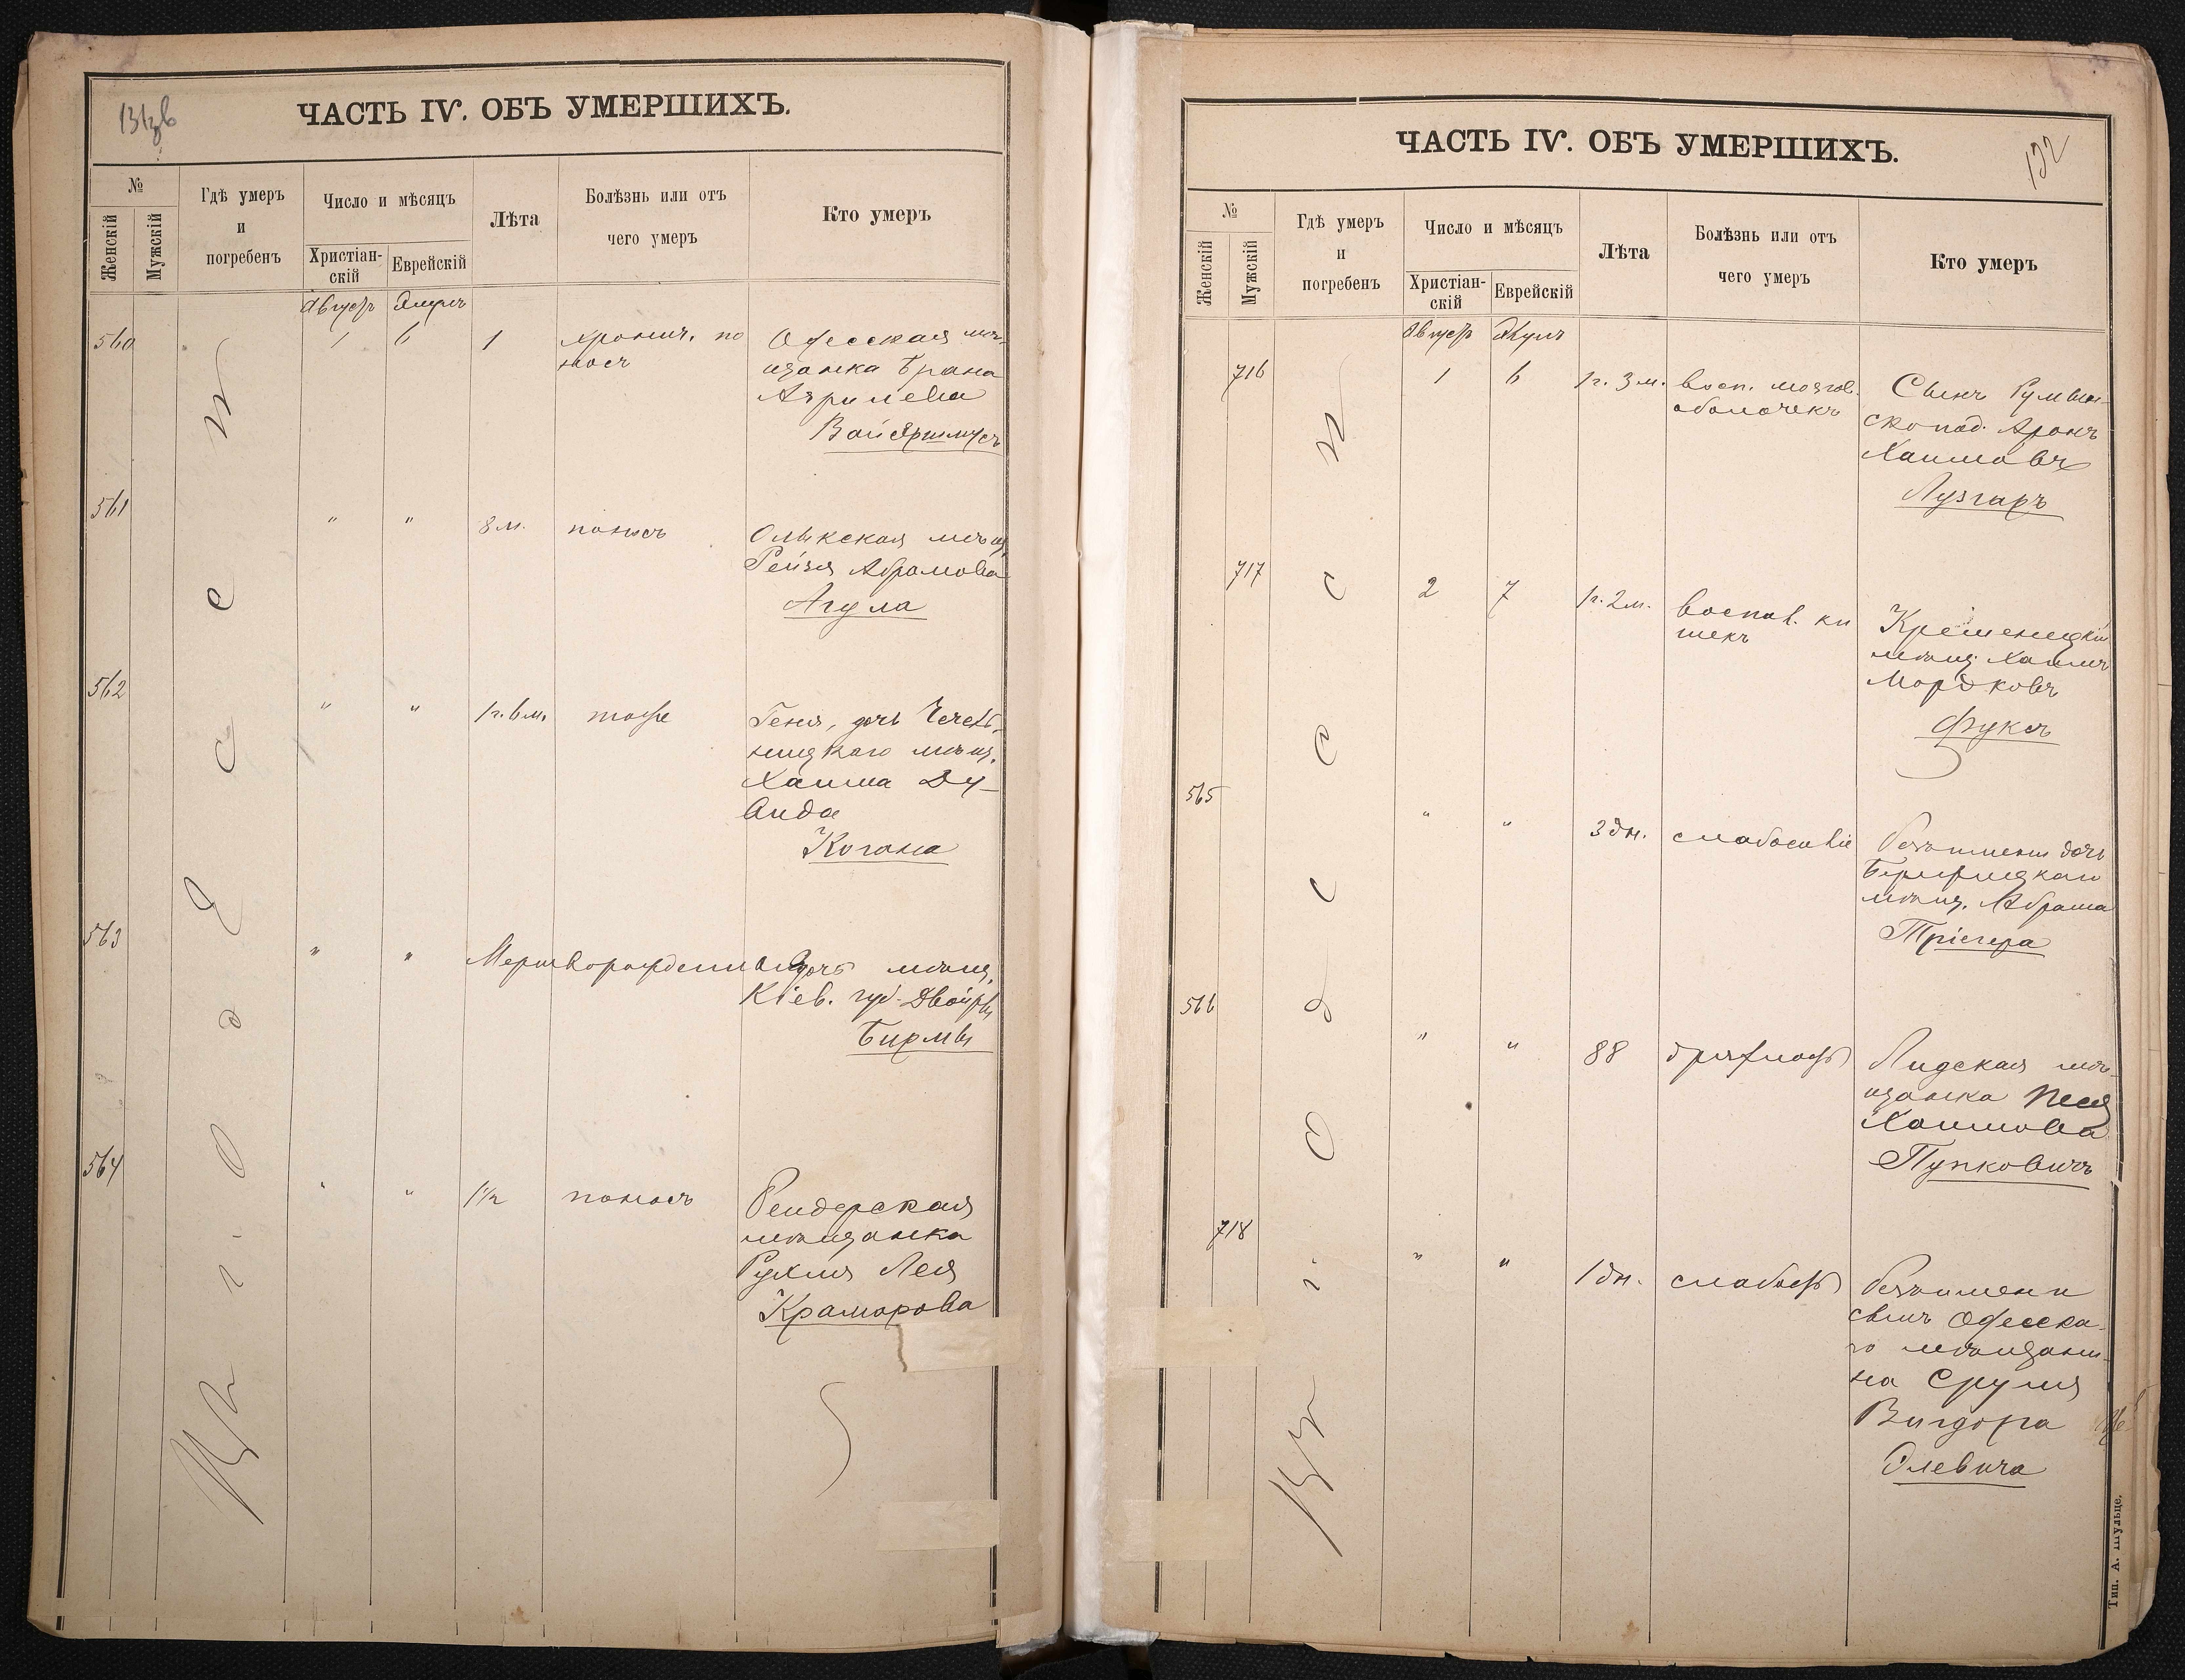 131об
ЧАСТЬ IV. ОБЪ УМЕРШИХЪ.
№
Женскій
Мужскій
Гдѣ умеръ
и
погребенъ
Число и мѣсяцъ
Христіан-
скій
Еврейскій
Лѣта
Болѣзнь или отъ
чего умеръ
Кто умеръ
Август
560 1 6 1 хронич. по Одесская мѣ-
носъ щанка Брана
Азрилева
561 " " 8 м. поносъ Олыкская мѣщ.
Рейзя Абрамова
Агула
562 " " 1г. 6м. тоже Геня, дочь Чечель-
ницкаго мѣщ.
Хаима Ду-
вида
Когана
563 " " Мертворожденная дочь мѣщ.
Кіев. губ. Двойры
Бирмы
564 " " 1½ поносъ Бендерская
мѣщанка
Рухля Лея
Крамарова
въ г. Одессѣ
132
ЧАСТЬ IV. ОБЪ УМЕРШИХЪ.
№
Женскій
Мужскій
Гдѣ умеръ
и
погребенъ
Число и мѣсяцъ
Христіан-
скій
Еврейскій
Лѣта
Болѣзнь или отъ
чего умеръ
Кто умеръ
Август
716 1 6 1г. 3м. восп. мозгов. Сынъ Румын-
оболочекъ ско под. Аронъ
Хаимовъ
Лузгаръ
717 2 7 1г. 2м. воспал. ки Кременецкій
шекъ мѣщ. Хаимъ
Мордковъ
Фуксъ
565 " " 3 дн. слабосиліе Безъимени дочь
мѣщ. Абрама
Трігера
566 " " 88 дряхлость Лидская мѣ-
щанка Песя
Хаимова
Пупковичъ
718 " " 1 дн. слабость Безъимени
сынъ Одесска-
го мѣщани-
на Сруля
Вигдора
Олевича
въ г. Одессѣ
Тип. А. Шульце.